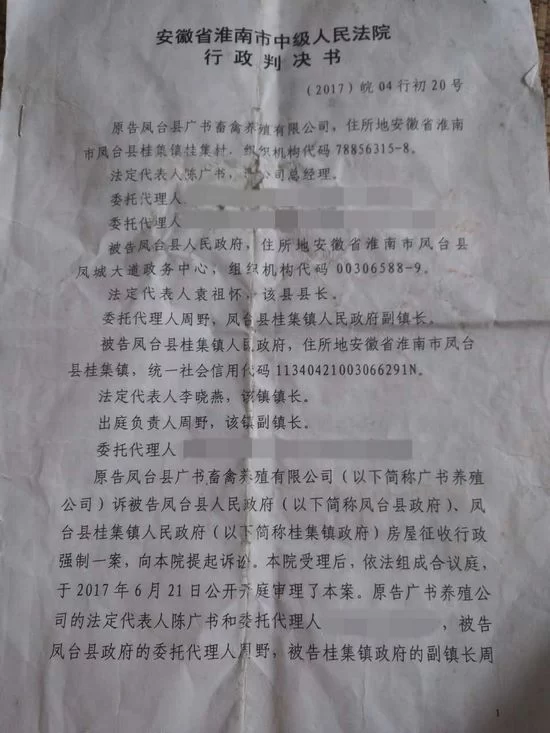 安徽省淮南市中级人民法院
行政判决书
（2017）皖04行初20号
原告凤台县广书畜禽养殖有限公司，住所地安徽省淮南
市凤台县桂集镇桂集村，组织机构代码78856315-8。
法定代表人陈广书，公司总经理。
委托代理人
委托代理人
被告凤台县人民政府，住所地安徽省淮南市凤台县
凤城大道政务中心，组织机构代码00306588-9。
法定代表人袁祖怀，该县县长。
委托代理人周野，凤台县桂集镇人民政府副镇长。
被告凤台县桂集镇人民政府，住所地安徽省淮南市凤台
县桂集镇，统一社会信用代码11340421003066291N。
法定代表人李晓燕，该镇镇长。
出庭负责人周野，该镇副镇长。
委托代理人
原告凤台县广书畜禽养殖有限公司（以下简称广书养殖
公司）诉被告凤台县人民政府（以下简称凤台县政府）、凤
台县桂集镇人民政府（以下简称桂集镇政府）房屋征收行政
强制一案，向本院提起诉讼。本院受理后，依法组成合议庭，
于2017年6月21日公开开庭审理了本案。原告广书养殖公
司的法定代表人陈广书和委托代理人，被告
凤台县政府的委托代理人周野，被告桂集镇政府的副镇长周
1